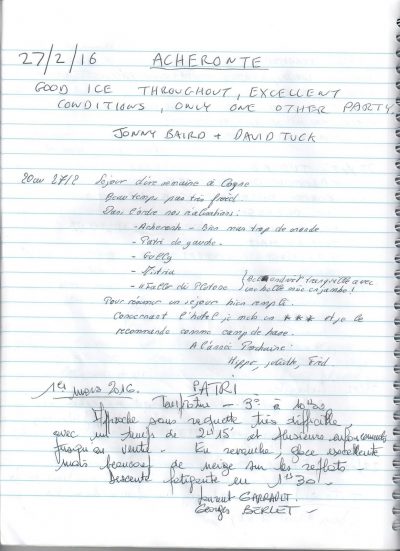 27/2/16 ACHERONTE
GOOD ICE THROUGHOUT, EXCELLENT
CONDITIONS, ONLY ONE OTHER PARTY
JONNY BAIRD + DAVID TUCK
20 au 27/2 Séjour d'une semaine à Cogne
Beau temps pas très froid.
Dans l'ordre nos réalisations:
- Acheronte - Bien mais trop de monde
- Patri de gauche.
- Gully
-
- tranquille avec
une belle mise en jambe!
Pour résumer un séjour bien rempli.
Concernant l'hôtel je mets un *** et je le
recommande comme camp de base.
A l'année Prochaine:
Hippo, Juliette, Fred.
1er mars 2016. PATRI
Température - 3° à 10h30
Approche sans raquette très difficile,
avec un temps de 2h15 et plusieurs enfoncements
jusqu'au ventre. En revanche glace excellente
mais beaucoup de neige sur les replats -
Descente fatigante en 1h30 -
Laurent GARRAULT.
Georges BERLET -